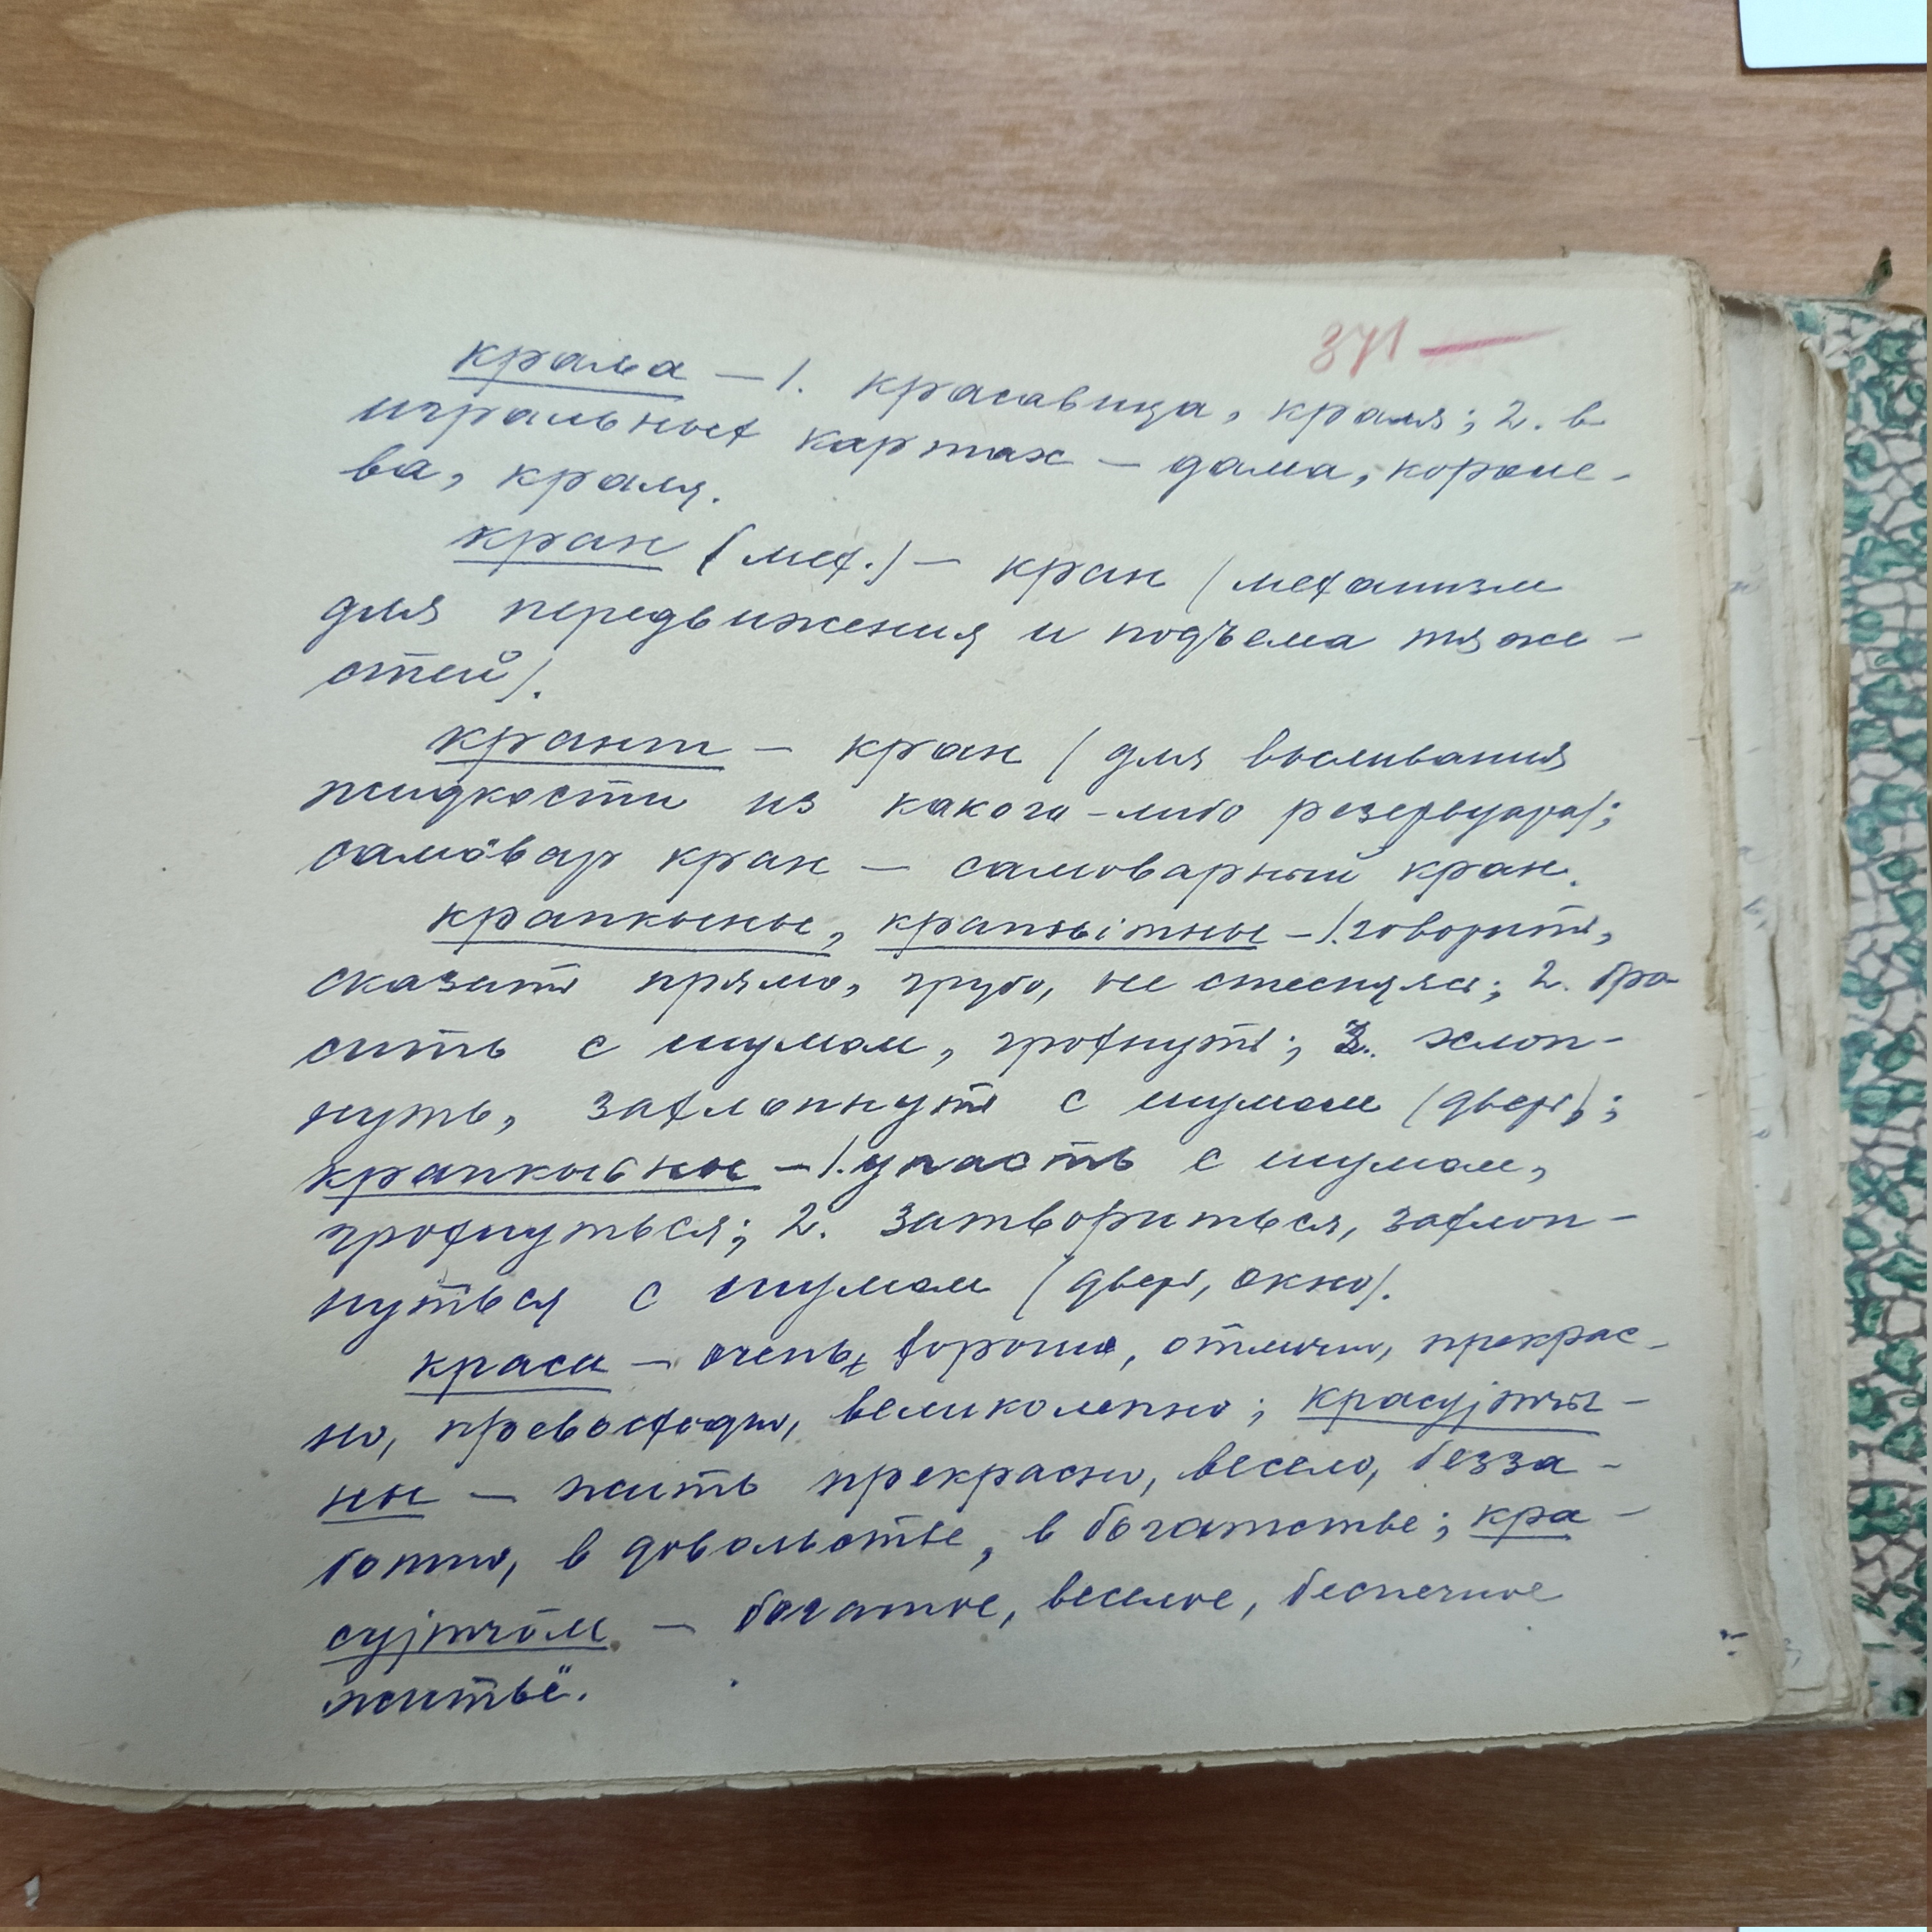 371 —
краља — 1. красавица, краля; 2. в
игральных картах — дама, короле-
ва, краля.
кран (мех.) — кран (механизм
для передвижения и подъема тяже-
стей).
крант — кран (для выливания
жидкости из какого-либо резервуара);
самöвар кран — самоварный кран.
крапкыны, — 1. говорить,
сказать прямо, грубо, не стесняясь; 2. бро-
сить с шумом, грохнуть; 3. хлоп-
нуть, захлопнуть с шумом (дверь);
— 1. упасть с шумом,
грохнуться; 2. затвориться, захлоп-
нуться с шумом (дверь, окно).
краса — очень хорошо, отлично, прекрас-
но, превосходно, великолепно; красујтчы-
ны — жить прекрасно, весело, безза-
ботно, в довольстве, в богатстве; кра-
сујтчöм — богатое, веселое, беспечное
житьё.